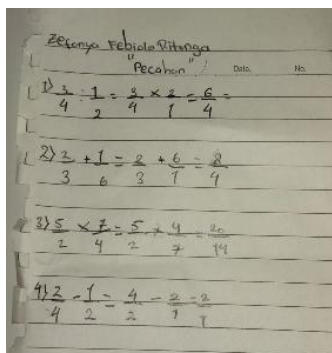 Zefanya Febiola Ritonga
"Pecahan" Date. No.
1) 3/4 : 1/2 = 3/4 × 2/1 = 6/4 =
2) 2/3 + 1/6 = 2/3 + 6/1 = 8/4
3) 5/2 × 7/4 = 5/2 × 4/7 = 20/14
4) 2/4 - 1/2 = 4/2 - 2/1 = 2/1